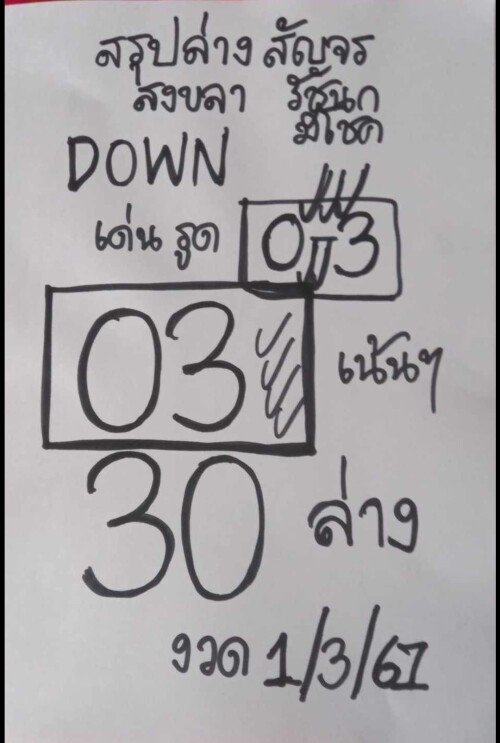 สรุปล่าง สัญจร
สงขลา
มีโชค
DOWN
เด่น รูด 0 3
03 เน้นๆ
30 ล่าง
งวด 1/3/67